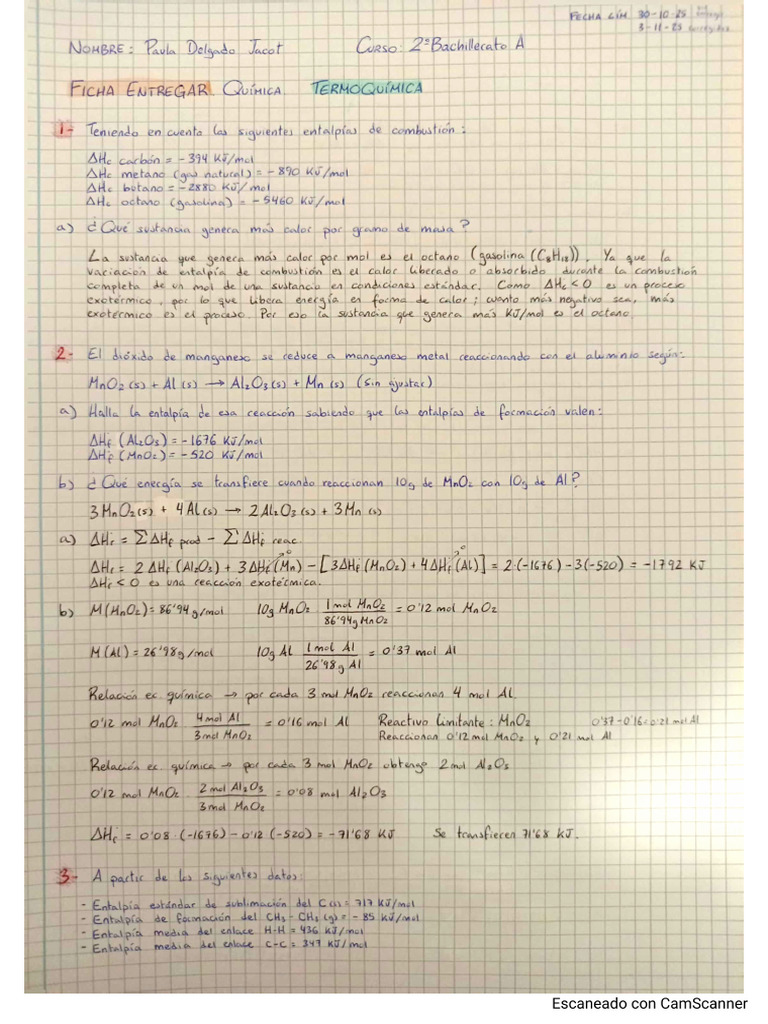 FECHA LÍM. 30-10-25
3-11-25
NOMBRE: Paula Delgado Jacot CURSO: 2º Bachillerato A
FICHA ENTREGAR QUÍMICA TERMOQUÍMICA
1- Teniendo en cuenta las siguientes entalpías de combustión:
ΔHc carbón = -394 KJ/mol
ΔHc metano (gas natural) = -890 KJ/mol
ΔHc butano = -2880 KJ/mol
ΔHc octano (gasolina) = -5460 KJ/mol
a) ¿Qué sustancia genera más calor por gramo de masa?
La sustancia que genera más calor por mol es el octano (gasolina (C8H18)). Ya que la
variación de entalpía de combustión es el calor liberado o absorbido durante la combustión
completa de un mol de una sustancia en condiciones estándar. Como ΔHc < 0 es un proceso
exotérmico, por lo que libera energía en forma de calor; cuanto más negativo sea, más
exotérmico es el proceso. Por eso la sustancia que genera más KJ/mol es el octano.
2- El dióxido de manganeso se reduce a manganeso metal reaccionando con el aluminio según:
MnO2 (s) + Al (s) → Al2O3 (s) + Mn (s) (sin ajustar)
a) Halla la entalpía de esa reacción sabiendo que las entalpías de formación valen:
ΔHf (Al2O3) = -1676 KJ/mol
ΔHf (MnO2) = -520 KJ/mol
b) ¿Qué energía se transfiere cuando reaccionan 10g de MnO2 con 10g de Al?
3MnO2(s) + 4Al(s) → 2Al2O3(s) + 3Mn (s)
a) ΔHr = ΣΔHf prod - ΣΔHf reac.
ΔHr = 2ΔHf (Al2O3) + 3ΔHf (Mn) - [3ΔHf (MnO2) + 4ΔHf (Al)] = 2·(-1676) - 3(-520) = -1792 KJ
ΔHr < 0 es una reacción exotérmica.
b) M(MnO2) = 86'94 g/mol 10g MnO2 1 mol MnO2 / 86'94g MnO2 = 0'12 mol MnO2
M(Al) = 26'98g/mol 10g Al 1 mol Al / 26'98g Al = 0'37 mol Al
Relación ec. química → por cada 3 mol MnO2 reaccionan 4 mol Al.
0'12 mol MnO2 · 4 mol Al / 3 mol MnO2 = 0'16 mol Al Reactivo limitante: MnO2 0'37-0'16=0'21 mol Al
Reaccionan 0'12 mol MnO2 y 0'21 mol Al
Relación ec. química → por cada 3 mol MnO2 obtengo 2 mol Al2O3
0'12 mol MnO2 · 2 mol Al2O3 / 3 mol MnO2 = 0'08 mol Al2O3
ΔHr = 0'08 · (-1676) - 0'12 (-520) = -71'68 KJ Se transfieren 71'68 KJ.
3- A partir de los siguientes datos:
- Entalpía estándar de sublimación del C(s) = 717 KJ/mol
- Entalpía de formación del CH3-CH3 (g) = -85 KJ/mol
- Entalpía media del enlace H-H = 436 KJ/mol
- Entalpía media del enlace C-C = 347 KJ/mol
Escaneado con CamScanner